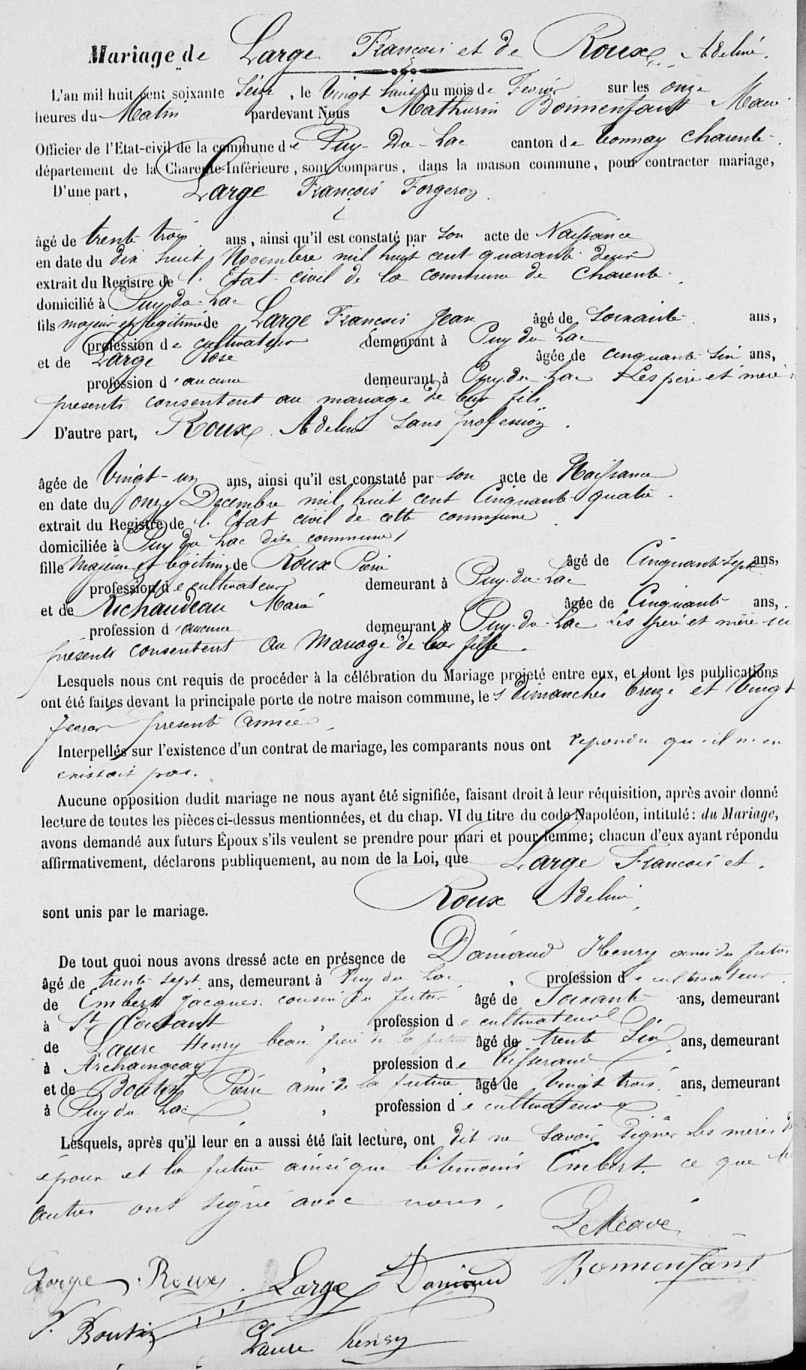 Mariage de Large François et de Roux Adeline.
L'an mil huit cent soixante Seize, le Vingt huit du mois de Février sur les onze
heures du Matin pardevant Nous Mathurin Bonnenfant Maire
Officier de l'Etat-civil de la commune de Puy-Du-Lac canton de tonnay charente.
département de la Charente-Inférieure, sont comparus, dans la maison commune, pour contracter mariage,
D'une part, Large François Forgeron
âgé de trente trois ans, ainsi qu'il est constaté par son acte de Naissance
en date du dix huit Novembre mil huit cent quarante deux
extrait du Registre de l'Etat civil de la commune de Charente.
domicilié à Puy-du-Lac
fils majeur et légitime de Large François Jean âgé de Soixante ans,
profession de cultivateur demeurant à Puy du Lac
et de Large Rose âgée de cinquante six ans,
profession d'aucune demeurant à Puy-du-Lac Les père et mère
présents consentent au mariage de leur fils
D'autre part, Roux Adeline Sans profession.
âgée de Vingt-un ans, ainsi qu'il est constaté par son acte de Naissance
en date du onze Décembre mil huit cent Cinquante quatre.
extrait du Registre de l'Etat civil de cette commune
domiciliée à Puy du Lac dite commune
fille Majeure et légitime de Roux Pierre âgé de Cinquante Sept ans,
profession de cultivateur demeurant à Puy-du-Lac
et de Richaudeau Marie âgée de Cinquante ans,
profession d'aucune demeurant à Puy-du-Lac Les père et mère ici
présents consentent au Mariage de leur fille.
Lesquels nous ont requis de procéder à la célébration du Mariage projeté entre eux, et dont les publications
ont été faites devant la principale porte de notre maison commune, les dimanches treize et Vingt
fevrier présente année.
Interpellés sur l'existence d'un contrat de mariage, les comparants nous ont repondu qu'il n'en
existait pas.
Aucune opposition dudit mariage ne nous ayant été signifiée, faisant droit à leur réquisition, après avoir donné
lecture de toutes les pièces ci-dessus mentionnées, et du chap. VI du titre du code Napoléon, intitulé : du Mariage,
avons demandé aux futurs Époux s'ils veulent se prendre pour mari et pour femme; chacun d'eux ayant répondu
affirmativement, déclarons publiquement, au nom de la Loi, que Large François et
Roux Adeline
sont unis par le mariage.
De tout quoi nous avons dressé acte en présence de Daniaud Henry ami du futur
âgé de trente sept ans, demeurant à Puy du Lac, profession de cultivateur
de Embert Jacques cousin du futur âgé de Soixante ans, demeurant
à St Coutant, profession de cultivateur
de Laure Henry beau frère de la future âgé de trente Six ans, demeurant
à Archaingeay, profession de tisserand
et de Boutin Pierre ami de la future âgé de Vingt trois ans, demeurant
à Puy du Lac, profession de cultivateur
Lesquels, après qu'il leur en a aussi été fait lecture, ont dit ne Savoir Signer les mères
époux et la future ainsi que le témoin Embert. ce que
autres ont signé avec nous.
Roux Large Daniaud Bonnenfant
P. Boutin Laure henry